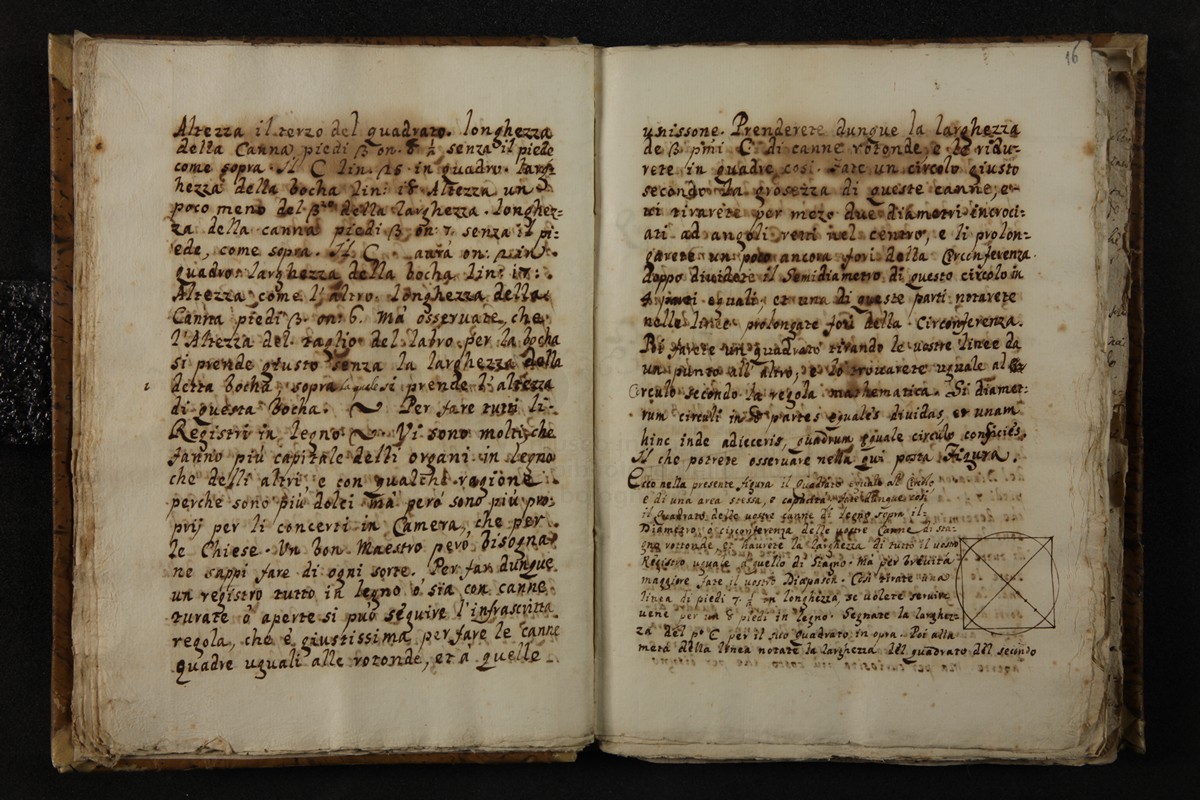 Altezza il terzo del quadrato. longhezza
della Canna piedi 3 on. 8 ½ senza il piede
come sopra. Il C lin. 25 in quadro. Larg-
hezza della bocha lin: 18 Altezza un
poco meno del 3zo della larghezza. longhez-
za della canna piedi 3 on: 7 senza il pi-
ede, come sopra. Il C. aurà on: 2 lin.
quadro: larghezza della bocha lin: 17:
Altezza come l'altro: longhezza della
Canna piedi 3 on: 6. mà osseruate, che
l'Altezza del taglio del labro per la bocha
si prende giusto senza la larghezza della
detta bocha, sopra la quale si prende l'altezza
di questa bocha. Per fare tutti li
Registri in legno. Vi sono molti, che
fanno più capitale delli organi in legno
che delli altri, e con qualche ragione
perche sono più dolci mà però sono più pro-
prij per li concerti in Camera, che per
le Chiese. Un bon Maestro però bisogna
ne sappi fare di ogni sorte. Per far dunque
un registro tutto in legno ò sia con canne
turate ò aperte si può seguire l'infrascritta
regola, che è giustissima per fare le canne
quadre uguali alle rotonde, et a quelle
16
unissone. Prenderete dunque la larghezza
de 3 pmi C di canne rotonde, e le ridu-
rete in quadre così. Fate un circolo giusto
secondo la grosezza di queste canne, e
ui tirarete per mezo due diametri incroci-
ati ad angoli retti nel centro, e li prolon-
garete un poco ancora fori della Circonferenza.
doppo diuidete il Semidiametro di questo circolo in
4 parti eguali, et una di queste parti notarete
nelle linee prolongate fori della Circonferenza.
Poi farete un quadrato tirando le uostre linee da
un punto all'altro, e lo trouarete uguale al
Circulo secondo la regola mathematica. Si diamet-
rum circuli in 8 partes equales diuidas, et unam
hinc inde adieceris, quadrum equale circulo conficies.
Il che potrete osseruare nella qui posta figura.
Ecco nella presente figura il quadrato eguale al Circolo
e di una area stessa, e capacità. Fate dunque così
il quadrato delle uostre canne di legno sopra il
Diametro, e circonferenza delle uostre Canne di sta-
gno rottonde et haurete la larghezza di tutto il uostro
Registro uguale à quello di stagno. Mà per breuità
maggiore fate il uostro Diapason. Così tirate una
linea di piedi 7 ½ in longhezza, se uolete seruire
uene per un 8 piedi in legno. Segnate la larghez-
za del po C per il suo quadrato in opra. Poi alla
metà della linea notate la larghezza del quadrato del secondo